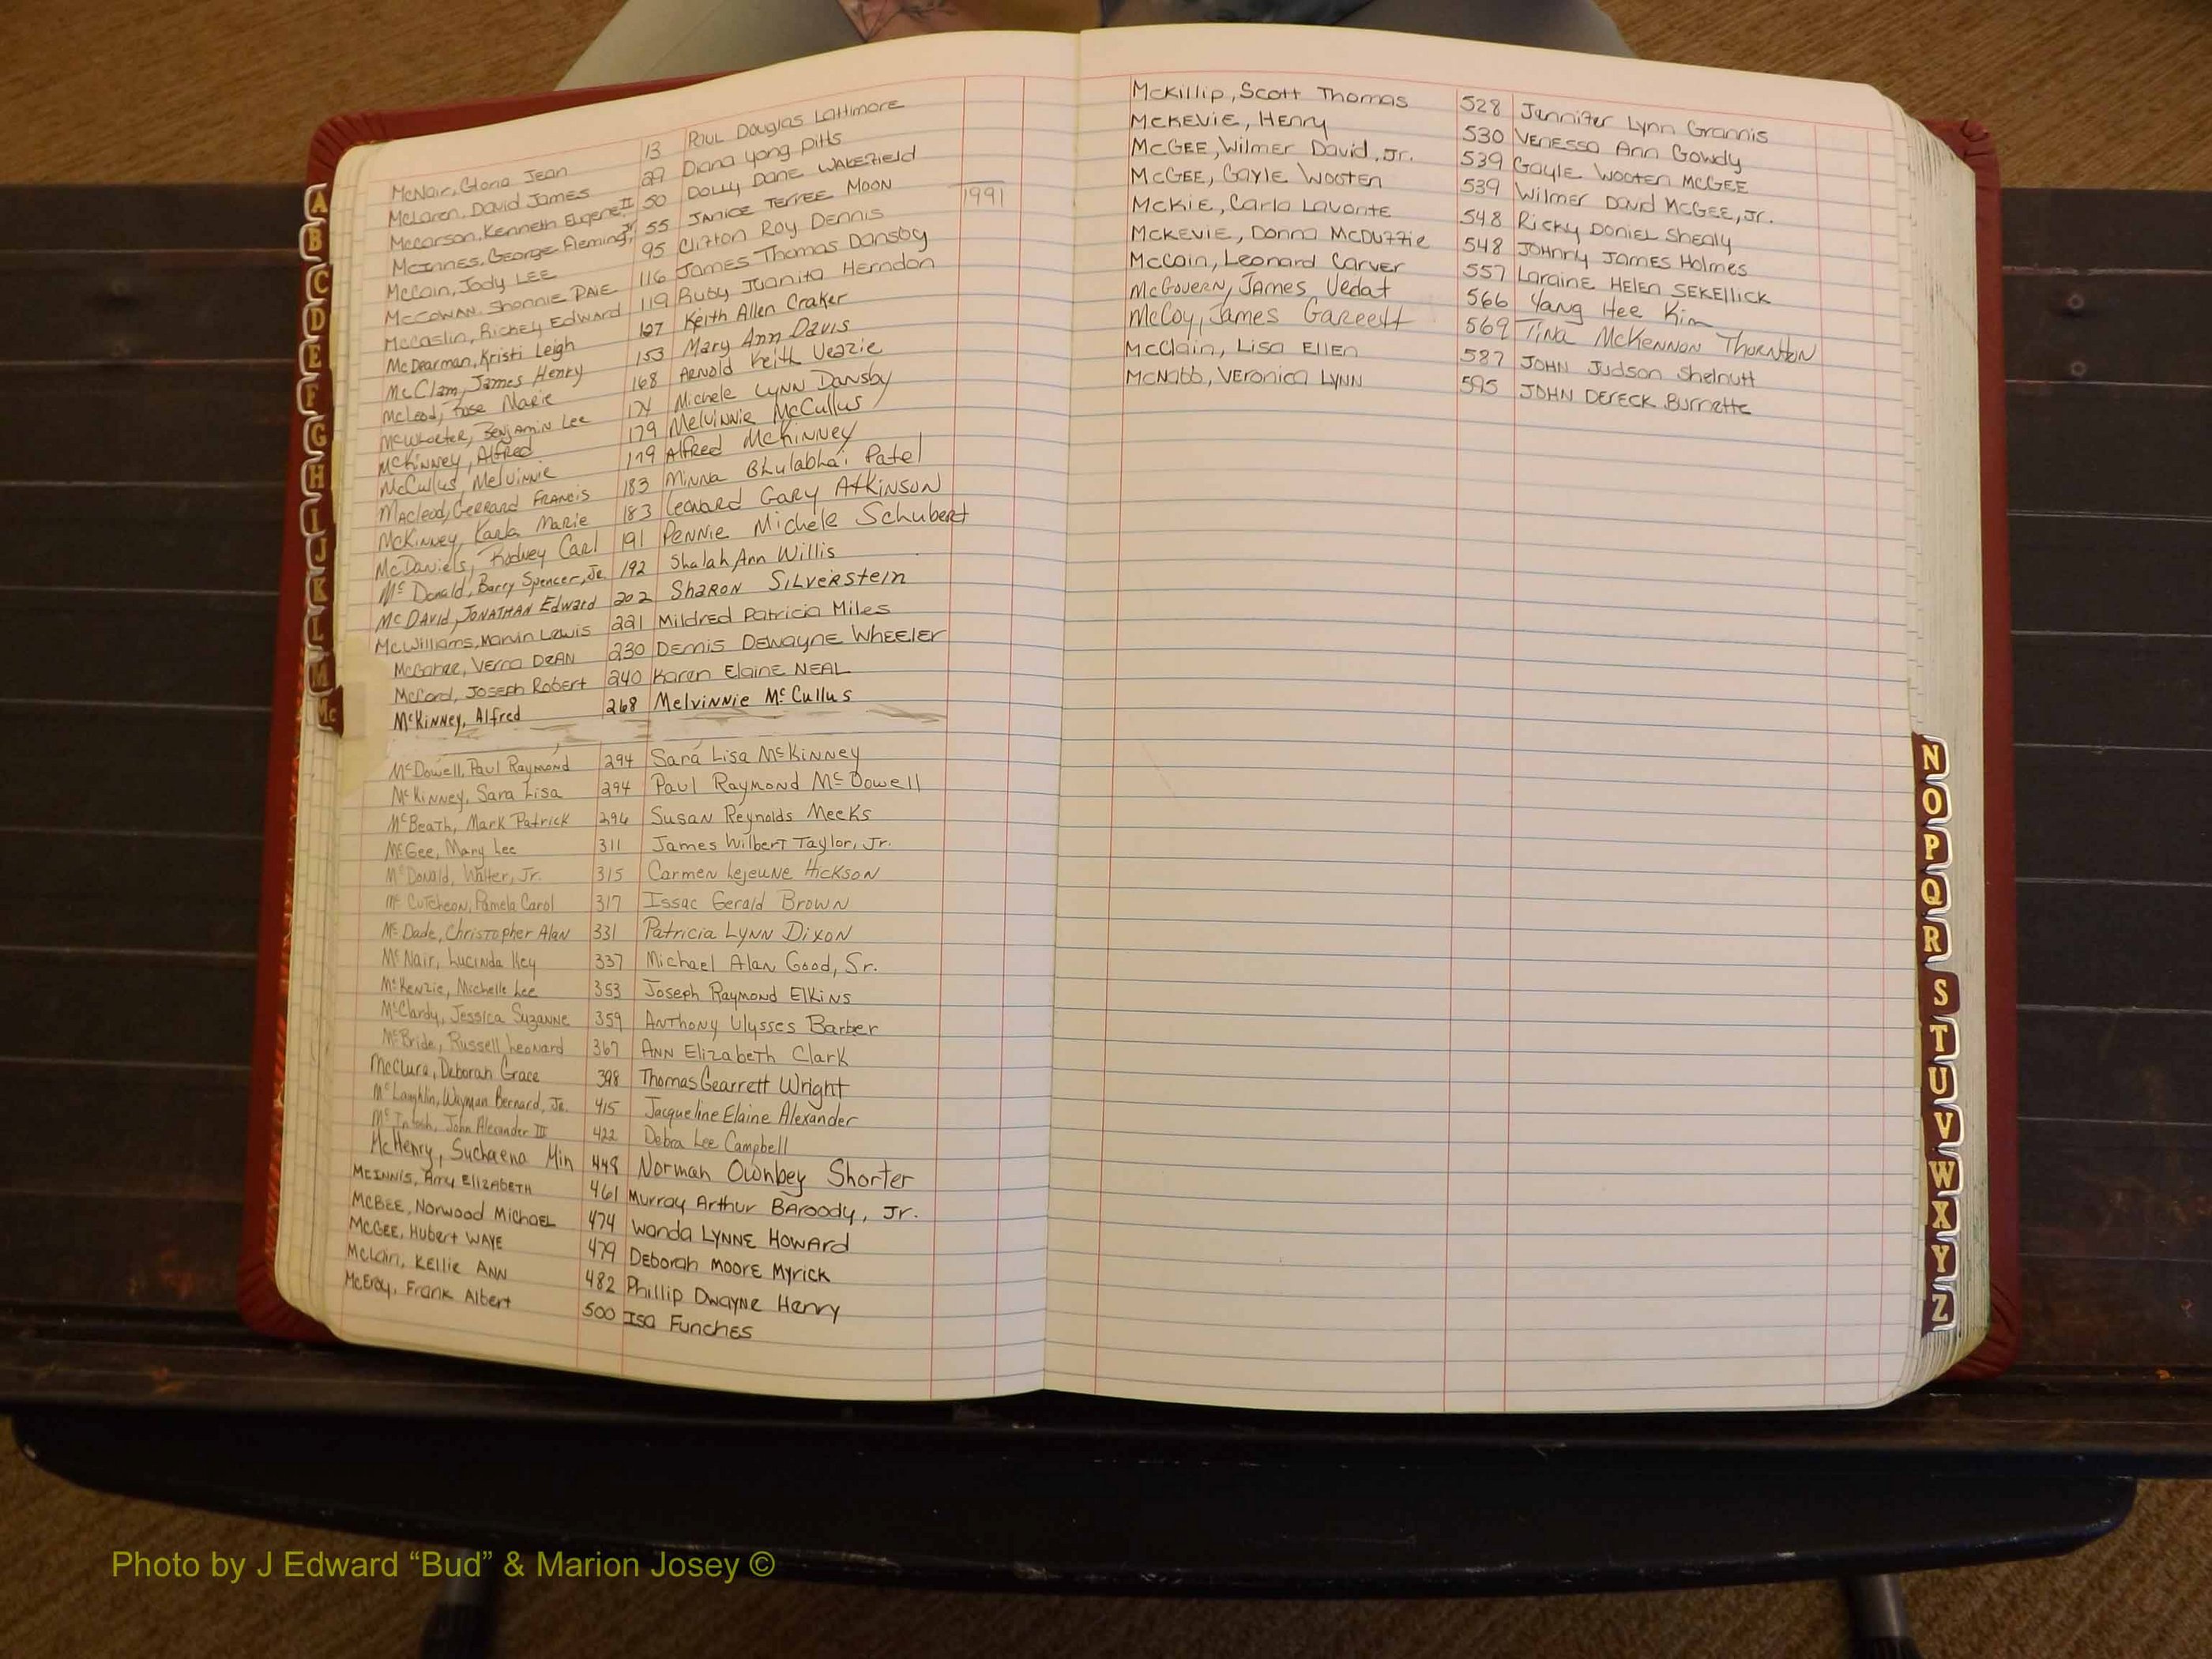 McNair, Gloria Jean 13 Paul Douglas Lattimore
McLaren, David James 29 Diana Yong Pitts
McCarson, Kenneth Eugene II 50 Dolly Dane Wakefield
McInnes, George Fleming, Jr 55 Janice Terree Moon 1991
McCain, Jody Lee 95 Clifton Roy Dennis
McCowan, Shonnie Paie 116 James Thomas Dansby
McCaslin, Rickey Edward 119 Ruby Juanita Herndon
McDearman, Kristi Leigh 127 Keith Allen Craker
McClam, James Henry 153 Mary Ann Davis
McLeod, Rose Marie 168 Arnold Keith Veazie
McWhorter, Benjamin Lee 174 Michele Lynn Dansby
McKinney, Alfred 179 Melvinnie McCullus
McCullus, Melvinnie 179 Alfred McKinney
Macleod, Gerrard Francis 183 Minna Bhulabhai Patel
McKinney, Karla Marie 183 Leonard Gary Atkinson
McDaniels, Rodney Carl 191 Pennie Michele Schubert
McDonald, Barry Spencer, Jr. 192 Shalah Ann Willis
McDavid, Jonathan Edward 202 Sharon Silverstein
McWilliams, Marvin Lewis 221 Mildred Patricia Miles
McGahee, Verna Dean 230 Dennis Dewayne Wheeler
McCord, Joseph Robert 240 Karen Elaine Neal
McKinney, Alfred 268 Melvinnie McCullus
McDowell, Paul Raymond 294 Sara Lisa McKinney
McKinney, Sara Lisa 294 Paul Raymond McDowell
McBeath, Mark Patrick 296 Susan Reynolds Meeks
McGee, Mary Lee 311 James Wilbert Taylor, Jr.
McDonald, Walter, Jr. 315 Carmen Lejeune Hickson
McCutcheon, Pamela Carol 317 Issac Gerald Brown
McDade, Christopher Alan 331 Patricia Lynn Dixon
McNair, Lucinda Key 337 Michael Alan Good, Sr.
McKenzie, Michelle Lee 353 Joseph Raymond Elkins
McClardy, Jessica Suzanne 359 Anthony Ulysses Barber
McBride, Russell Leonard 367 Ann Elizabeth Clark
McClure, Deborah Grace 398 Thomas Gearrett Wright
McLaughlin, Wayman Bernard, Jr. 415 Jacqueline Elaine Alexander
McIntosh, John Alexander III 422 Debra Lee Campbell
McHenry, Suchaena Min 448 Norman Ownbey Shorter
McInnis, Amy Elizabeth 461 Murray Arthur Baroody, Jr.
McBee, Norwood Michael 474 Wanda Lynne Howard
McGee, Hubert Waye 479 Deborah Moore Myrick
McLain, Kellie Ann 482 Phillip Dwayne Henry
McElroy, Frank Albert 500 Isa Funches
McKillip, Scott Thomas 528 Jennifer Lynn Grannis
McKevie, Henry 530 Venessa Ann Gowdy
McGee, Wilmer David, Jr. 539 Gayle Wooten McGee
McGee, Gayle Wooten 539 Wilmer David McGee, Jr.
McKie, Carla Lavonte 548 Ricky Daniel Shealy
McKevie, Donna McDuffie 548 Johnny James Holmes
McCain, Leonard Carver 557 Laraine Helen Sekellick
McGovern, James Vedat 566 Yang Hee Kim
McCoy, James Garrett 569 Tina McKennon Thornton
McClain, Lisa Ellen 587 John Judson Shelnutt
McNabb, Veronica Lynn 595 John Dereck Burnette
A
B
C
D
E
F
G
H
I
J
K
L
M
Mc
N
O
P
Q
R
S
T
U
V
W
X
Y
Z
Photo by J Edward “Bud” & Marion Josey ©